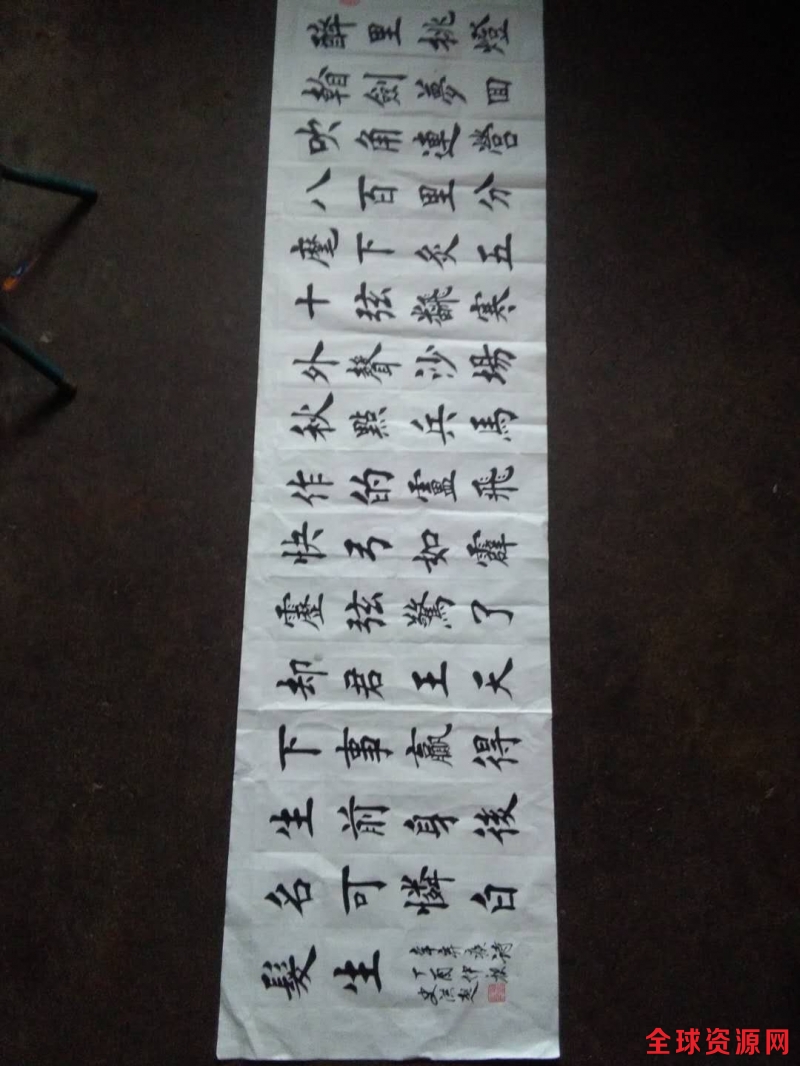 醉里挑燈
看劍夢回
吹角連營
八百里分
麾下炙五
十弦翻寒
外聲沙場
秋點兵馬
作的盧飛
快弓如霹
靂弦驚了
却君王天
下事贏得
生前身後
名可憐白
髮生
辛弃疾詩
丁酉仲秋
史洪超
全球资源网